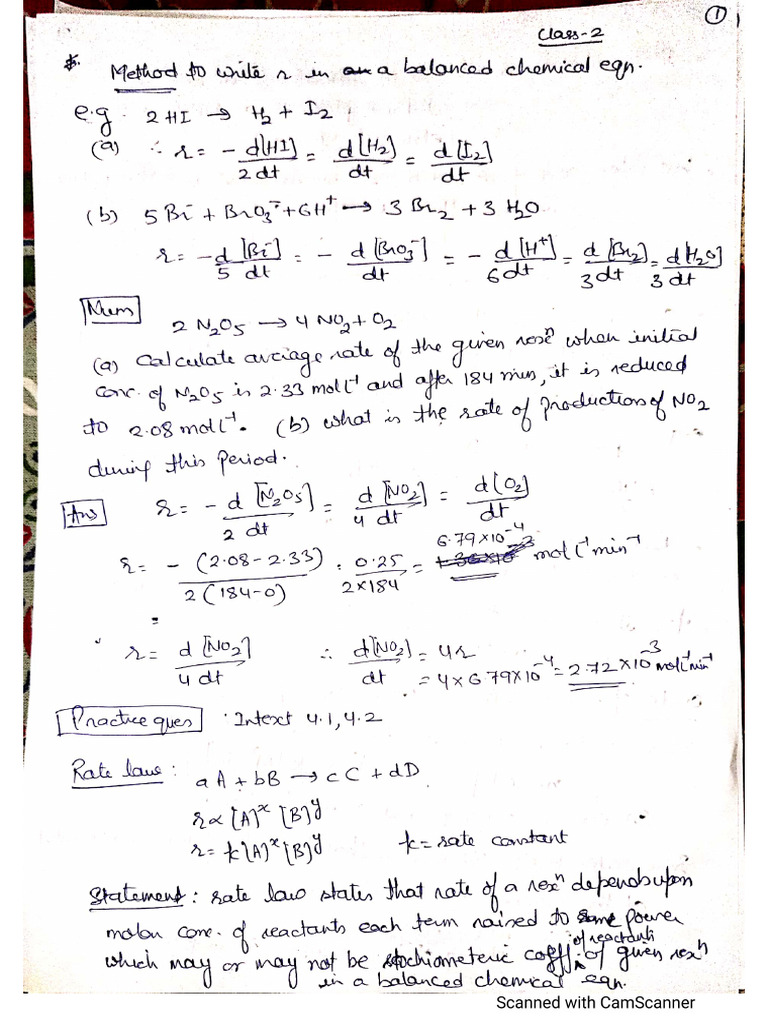 ①
Class-2
* Method to write r in a balanced chemical eqn.
e.g. 2HI → H₂ + I₂
(a) ∴ r = - d[HI]/2dt = d[H₂]/dt = d[I₂]/dt
(b) 5Br⁻ + BrO₃⁻ + 6H⁺ → 3Br₂ + 3H₂O
r = - d[Br⁻]/5 dt = - d[BrO₃⁻]/dt = - d[H⁺]/6dt = d[Br₂]/3dt = d[H₂O]/3dt
Num
2N₂O₅ → 4NO₂ + O₂
(a) Calculate average rate of the given rexⁿ when initial
conc. of N₂O₅ is 2.33 mol L⁻¹ and after 184 mins, it is reduced
to 2.08 mol L⁻¹. (b) what is the rate of production of NO₂
during this period.
Ans r = - d[N₂O₅]/2dt = d[NO₂]/4dt = d[O₂]/dt
r = - (2.08-2.33)/2(184-0) = 0.25/2×184 = 6.79×10⁻⁴ mol L⁻¹ min⁻¹
r = d[NO₂]/4dt ∴ d[NO₂]/dt = 4r
= 4×6.79×10⁻⁴ = 2.72×10⁻³ mol L⁻¹ min⁻¹
Practice ques Intext 4.1, 4.2
Rate law : aA + bB → cC + dD
r ∝ [A]ˣ [B]ʸ
r = k[A]ˣ [B]ʸ k = rate constant
Statement : rate law states that rate of a rexⁿ depends upon
molar conc. of reactants each term raised to some power
which may or may not be stochiometeric coff. of reactants of given rexⁿ
in a balanced chemical eqn.
Scanned with CamScanner